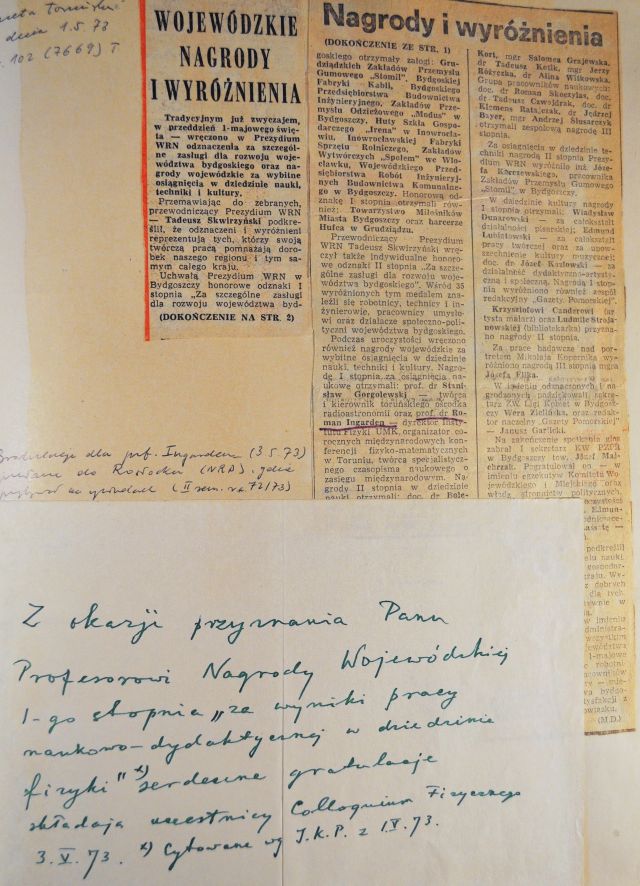 dnia 1.5.73
102 (7669) T
WOJEWÓDZKIE
NAGRODY
I WYRÓŻNIENIA
Tradycyjnym już zwyczajem,
w przeddzień 1-majowego świę-
ta — wręczono w Prezydium
WRN odznaczenia za szczegól-
ne zasługi dla rozwoju woje-
wództwa bydgoskiego oraz na-
grody wojewódzkie za wybitne
osiągnięcia w dziedzinie nauki,
techniki i kultury.
Przemawiając do zebranych,
przewodniczący Prezydium WRN
— Tadeusz Skwirzyński podkre-
ślił, że odznaczeni i wyróżnieni
reprezentują tych, którzy swoją
twórczą pracą pomnażają doro-
bek naszego regionu i tym sa-
mym całego kraju.
Uchwałą Prezydium WRN w
Bydgoszczy honorowe odznaki I
stopnia „Za szczególne zasługi
dla rozwoju województwa byd-
(DOKOŃCZENIE NA STR. 2)
Nagrody i wyróżnienia
(DOKOŃCZENIE ZE STR. 1)
goskiego otrzymały załogi: Gru-
dziądzkich Zakładów Przemysłu
Gumowego „Stomil”, Bydgoskiej
Fabryki Kabli, Bydgoskiego
Przedsiębiorstwa Budownictwa
Inżynieryjnego, Zakładów Prze-
mysłu Odzieżowego „Modus” w
Bydgoszczy, Huty Szkła Gospo-
darczego „Irena” w Inowrocła-
wiu, Inowrocławskiej Fabryki
Sprzętu Rolniczego, Zakładów
Wytwórczych „Społem” we Wło-
cławku, Wojewódzkiego Przed-
siębiorstwa Robót Inżynieryj-
nych Budownictwa Komunalne-
go w Bydgoszczy. Honorową od-
znakę I stopnia otrzymali rów-
nież: Towarzystwo Miłośników
Miasta Bydgoszczy oraz harcerze
Hufca w Grudziądzu.
Przewodniczący Prezydium
WRN Tadeusz Skwirzyński wrę-
czył także indywidualne honoro-
we odznaki II stopnia „Za szcze-
gólne zasługi dla rozwoju woje-
wództwa bydgoskiego”. Wśród 35
wyróżnionych tym medalem zna-
leźli się robotnicy, technicy i in-
żynierowie, pracownicy umysło-
wi oraz działacze społeczno-poli-
tyczni województwa bydgoskiego.
Podczas uroczystości wręczono
również nagrody wojewódzkie za
wybitne osiągnięcia w dziedzinie
nauki, techniki i kultury. Nagro-
dę I stopnia za osiągnięcia na-
ukowe otrzymali: prof. dr Stani-
sław Gorgolewski — twórca
i kierownik toruńskiego ośrodka
radioastronomii oraz prof. dr Ro-
man Ingarden — dyrektor Insty-
tutu Fizyki UMK, organizator co-
rocznych międzynarodowych
konferencji fizyko-matematycznych
w Toruniu, twórca specjalistycz-
nego czasopisma naukowego o
zasięgu międzynarodowym. Na-
grody II stopnia w dziedzinie
nauki otrzymali: doc. dr Bole-
Kozi, mgr Salomea Grajewska,
dr Tadeusz Kotik, mgr Jerzy
Różycka, dr Alina Witkowska.
Grupa pracowników naukowych:
doc. dr Roman Skoczylas, doc. dr
dr Tadeusz Cawojdrak, doc. dr
Klemens Ratajczak, dr Jędrzej
Bayer, mgr Andrzej Ślusarczyk
otrzymali zespołową nagrodę III
stopnia.
Za osiągnięcia w dziedzinie
techniki nagrodą II stopnia Prezy-
dium WRN wyróżniło inż. Józe-
fa Karczewskiego, pracownika
Zakładów Przemysłu Gumowego
„Stomil” w Bydgoszczy.
W dziedzinie kultury nagrody
I stopnia otrzymali: Władysław
Dunarowski — za całokształt
działalności pisarskiej; Edmund
— za całokształt
pracy twórczej oraz za upow-
szechnienie kultury muzycznej;
doc. dr Józef Kozłowski — za
działalność dydaktyczno-artysty-
czną i społeczną. Nagrodą I stop-
nia wyróżniono również zespół
redakcyjny „Gazety Pomorskiej”.
Krzysztofowi Canderowi (ar-
tysta malarz) oraz Ludmile Stroja-
nowskiej (bibliotekarka) przyzna-
no nagrody II stopnia.
Za prace badawcze nad por-
tretem Mikołaja Kopernika wy-
różniono nagrodą III stopnia mgra
Józefa Flika.
W imieniu odznaczonych i na-
grodzonych podziękowali: sekre-
tarz ZW Ligi Kobiet w Bydgoszczy
Wera Zielińska, oraz redak-
tor naczelny „Gazety Pomorskiej”
— Janusz Garlicki.
Na zakończenie spotkania głos
zabrał I sekretarz KW PZPR
w Bydgoszczy tow. Józef Maj-
chrzak. Pogratulował on — w
imieniu egzekutyw Komitetu Wo-
jewódzkiego i Miejskiego oraz
władz stronnictw politycznych,
(M.D.)
Gratulacje dla prof. Ingardena (3.5.73)
do Rostocku (NRD), gdzie
(II sem. r.a. 72/73)
Z okazji przyznania Panu
Profesorowi Nagrody Wojewódzkiej
1-go stopnia „za wyniki pracy
naukowo-dydaktycznej w dziedzinie
fizyki” x) serdeczne gratulacje
składają uczestnicy Colloquium Fizycznego
3.V.73. x) Cytowane wg I.K.P. z 1.V.73.